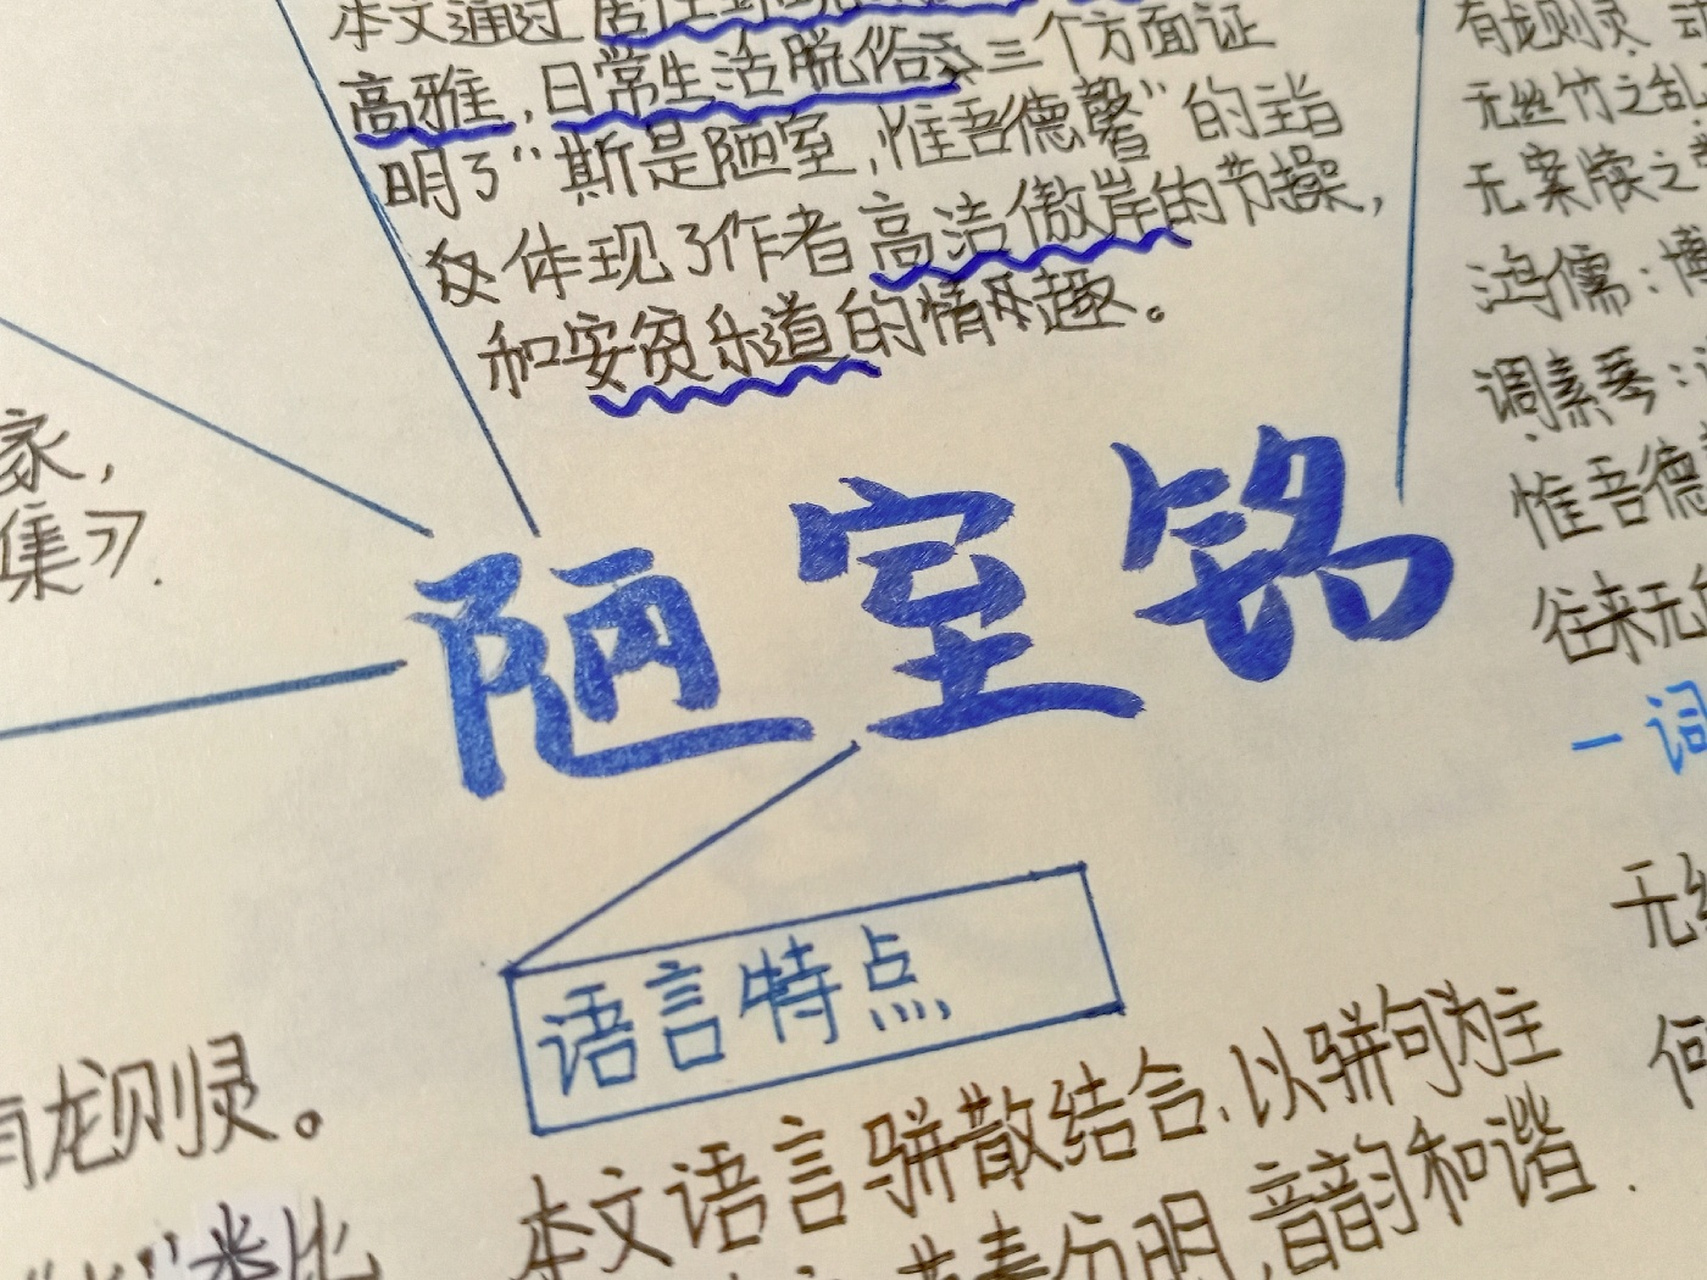 本文通过居住环境
高雅，日常生活脱俗三个方面证
明了“斯是陋室，惟吾德馨”的主旨
这体现了作者高洁傲岸的节操，
和安贫乐道的情趣。
家，
集》.
陋室铭
语言特点
本文语言骈散结合，以骈句为主
分明，音韵和谐.
有龙则灵。
类比
有龙则灵
无丝竹之乱
无案牍之
鸿儒：博
调素琴：
惟吾德
往来无
一词
无丝
何